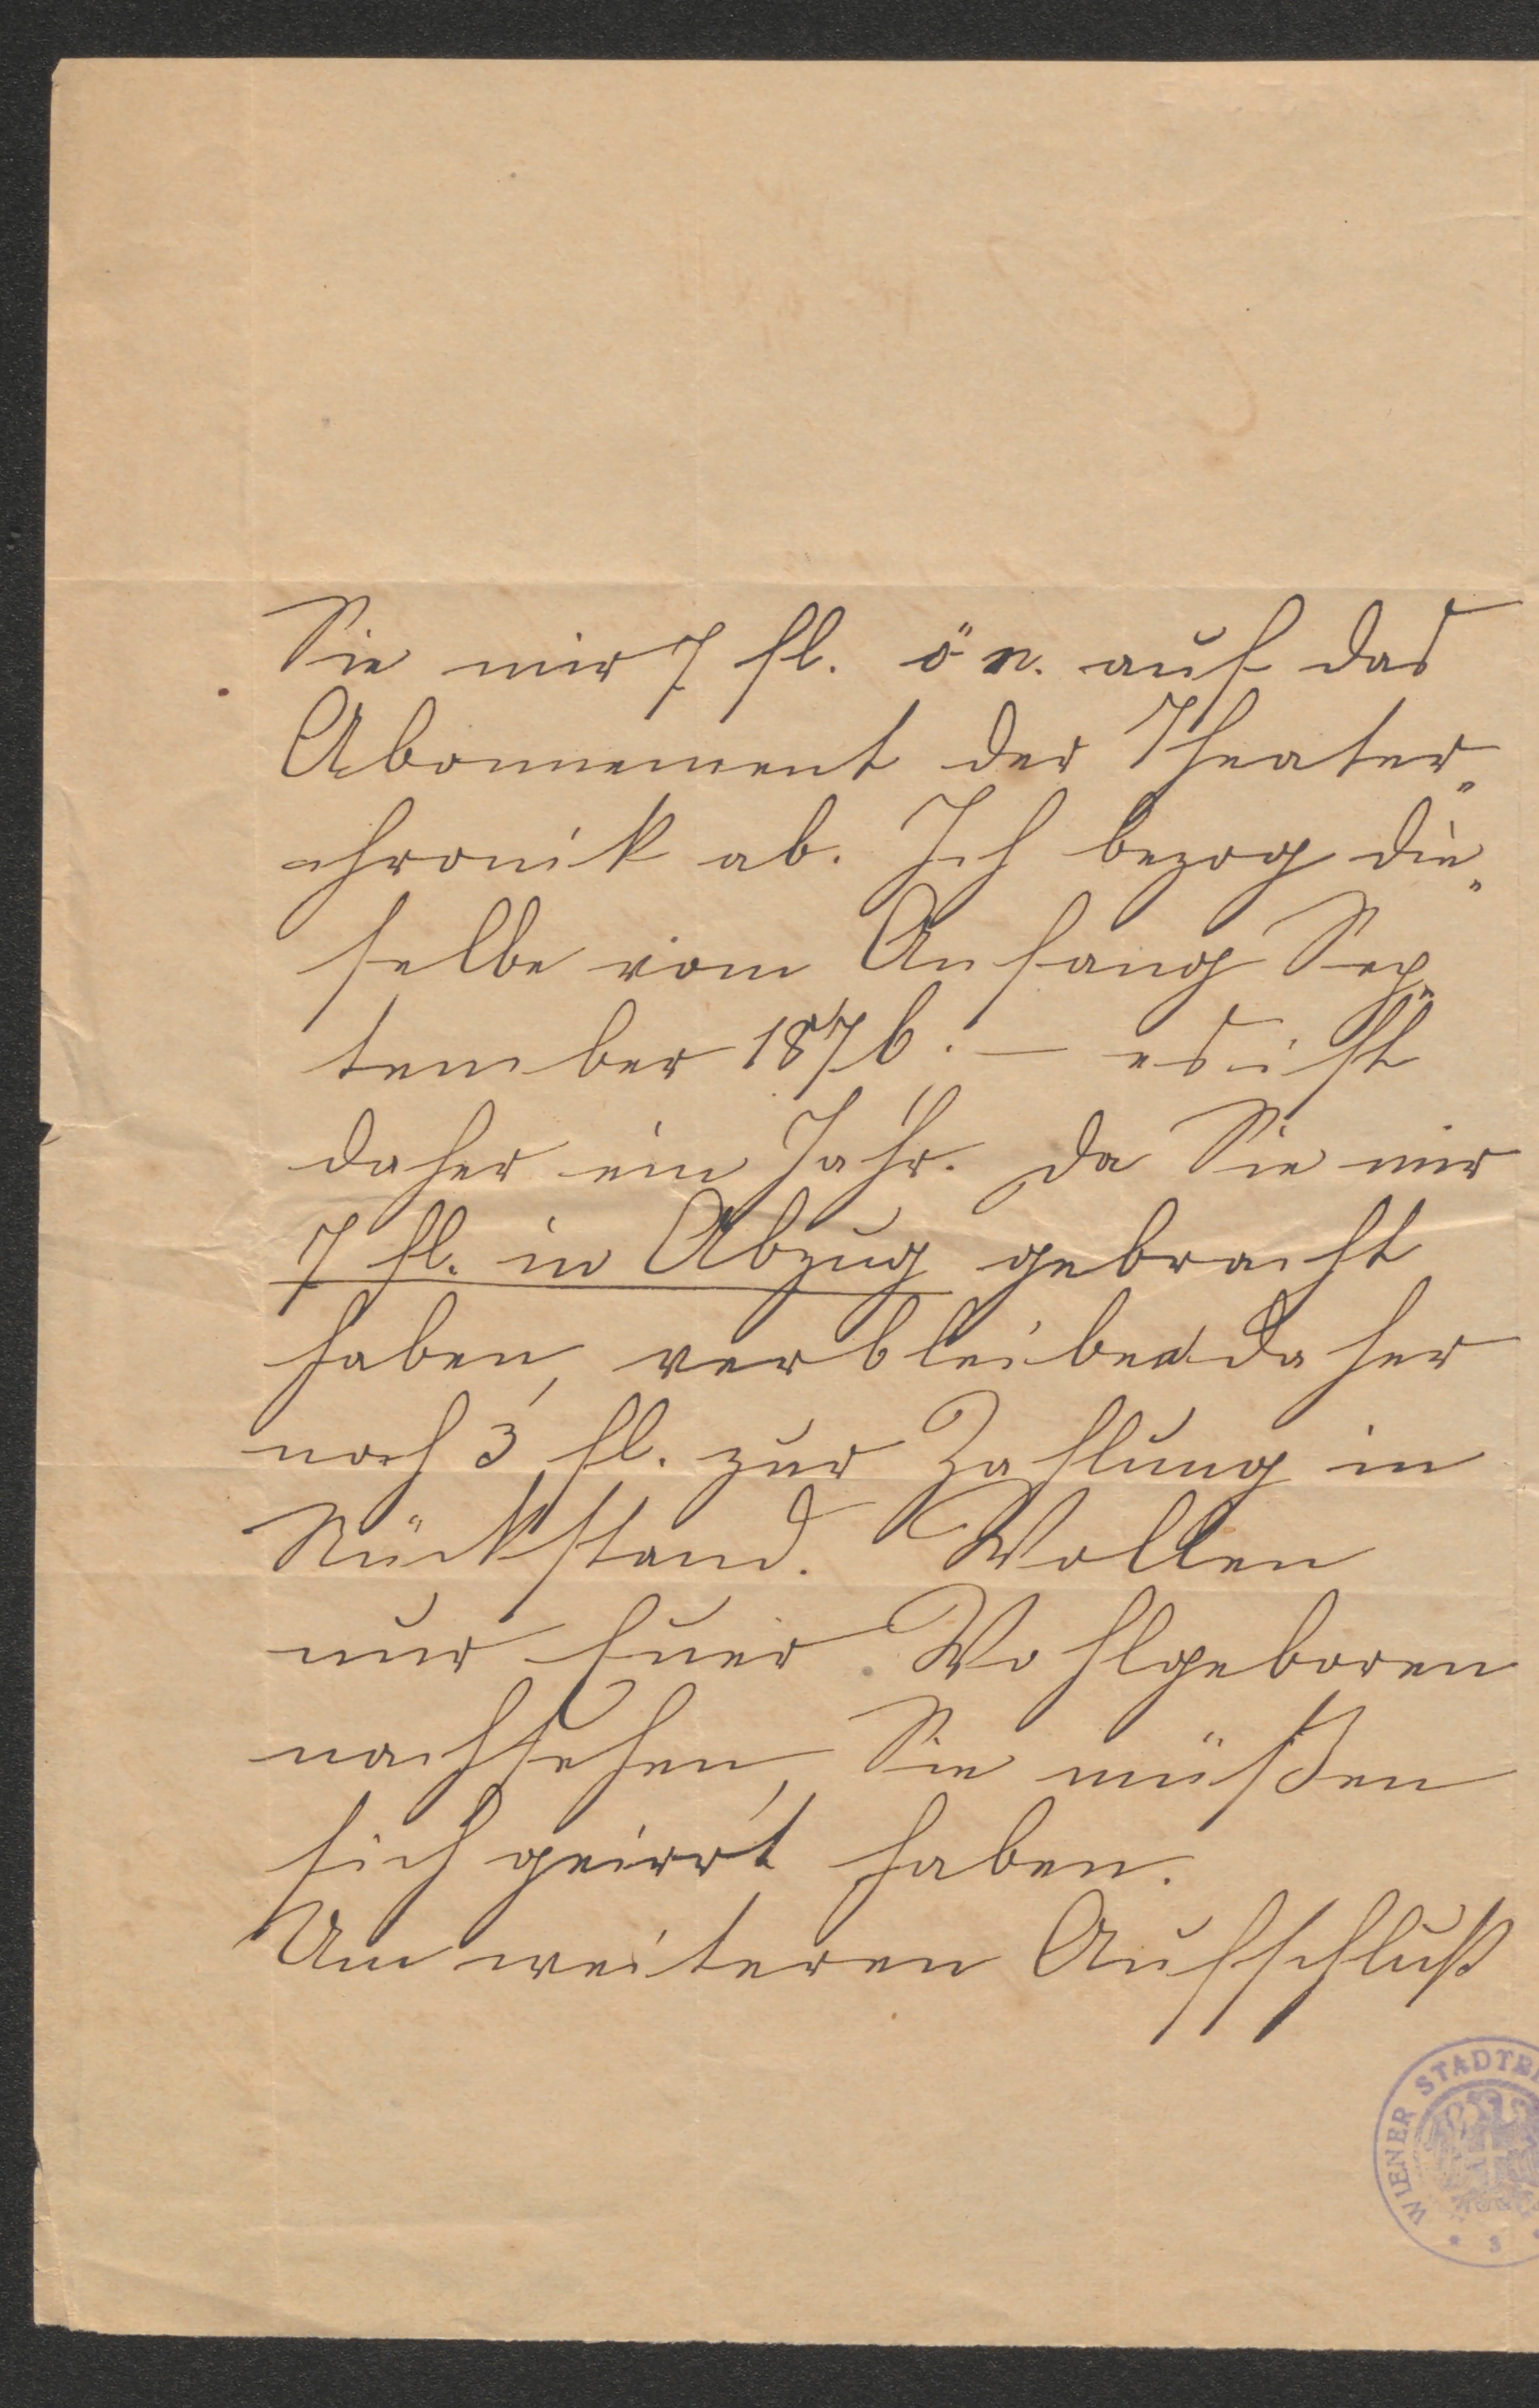 Sie mir 7 fl. ö w. auf das
Abonnement der Theater„
chronik ab. Ich bezog die„
selbe vom Anfang Sep„
tember 1876. — es ist
daher ein Jahr. Da Sie mir
7 fl. in Abzug gebracht
haben, verbleiben daher
noch 3 fl. zur Zahlung in
Rückstand. Wollen
nur Euer Wohlgeboren
nachsehen, Sie müßen
sich geirrt haben.
Um weiteren Aufschluß
WIENER STADTBI
* 3 *